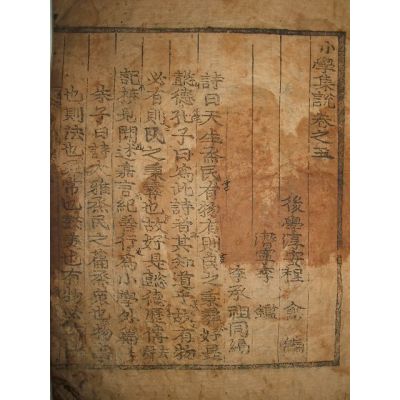 小學集說卷之五
後學淳安程 編
李 鑑
李承祖同編
詩曰天生烝民有物有則民之秉彝好是
懿德孔子曰爲此詩者其知道乎故有物
必有則民之秉彝也故好是懿德歷傳
記接見聞述嘉言紀善行爲小學外篇
朱子曰詩大雅烝民之篇烝衆也物事
也則法也彝常也懿美也有物必有則